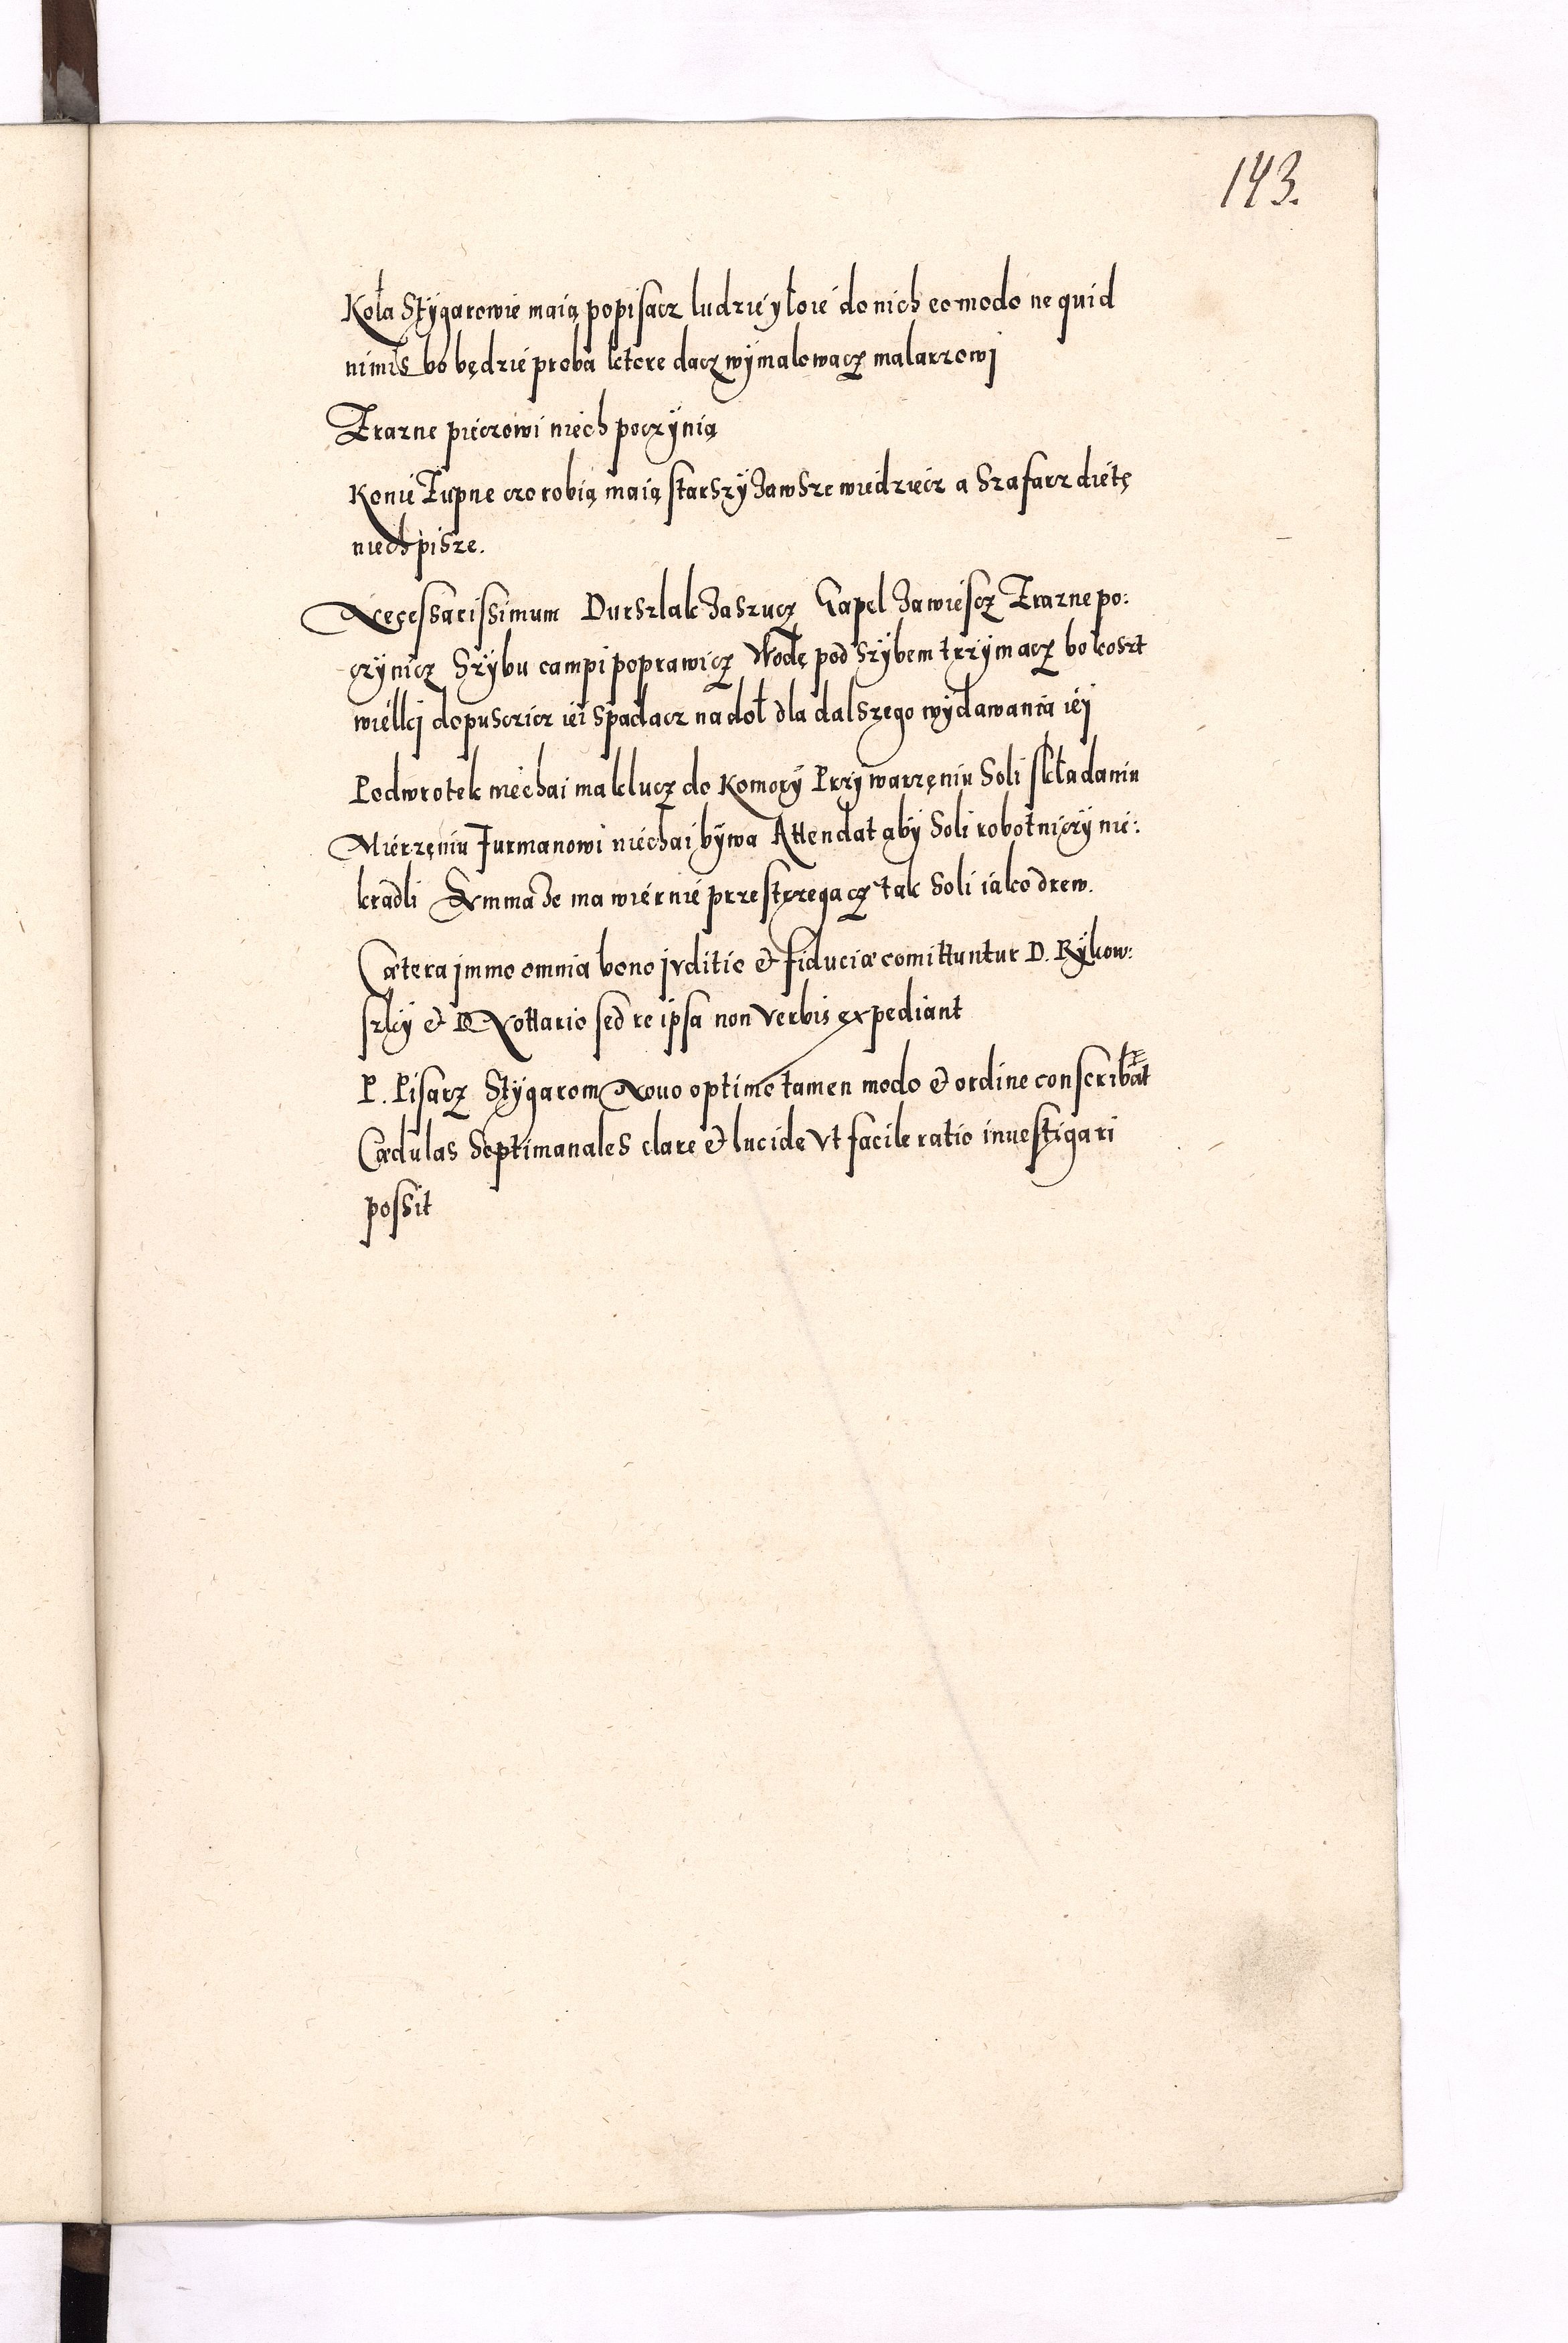 143.
Koła Stÿgarowie maią popisacz ludzie ÿ łoie do nich eo modo ne quid
nimis bo będzie proba ktore dacz wÿmalowacz malarzowi
Żrazne pieczowi niech poczÿnią
Konie Żupne czo robią maią starszÿ zawsze wiedziecz a Szafarz dietę
niech pisze.
Necessarissimum Durszlak zaszucz Gapel zawiescz Żrazne po:
czÿnicz Szÿbu campi poprawicz Wodę pod szÿbem trzÿmacz bo koszt
wielkj dopuscicz iei spadacz na doł dla dalszego wÿdawania iéj
Podwrotek niechai ma klucz do Komorÿ Przÿ warzęniu Soli składaniu
Mierzęniu Furmanowi niechai bÿwa Attendat abÿ Soli robotniczÿ nie:
kradli Summa ze ma wiérnie przestrzegacz tak Soli iako drew.
Cætera jmmo omnia bono jvditio & fiduciæ comittuntur D. Rÿkow:
szkÿ & D Nottario sed re ipsa non verbis expediant
P. Pisarz Stÿgarom Nouo optimo tamen modo & ordine conscribat
Cædulas Septimanales clare & lucide Vt facile ratio inuestigari
possit